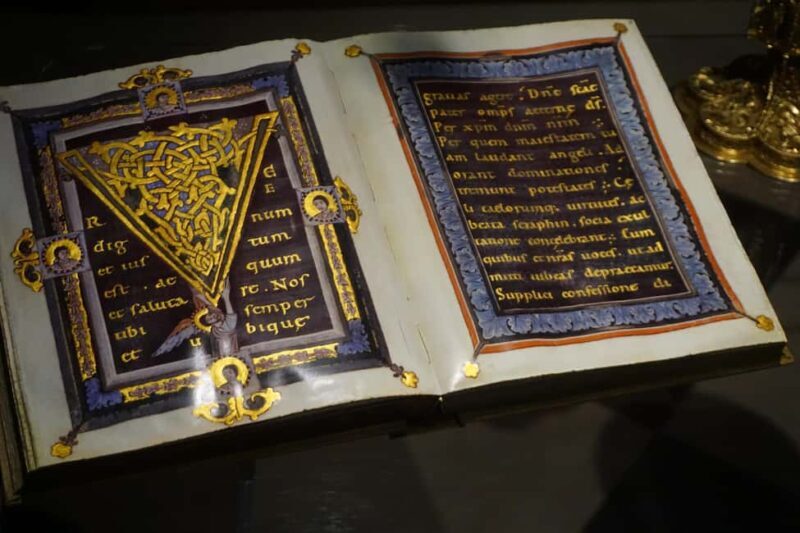 V E
E
R num
dig tum
et ius quum
est. ae re. Nos
et saluta semper
tibi bique
et u
gratias agere : Dne scae
pater omps aeterne ds.
Per xpm dnm nrm :
Per quem maiestatem tu
am laudant angeli. Ad
orant dominationes :
tremunt potestates : Cę
li caelorumq; uirtutes, ac
beata seraphin, socia exul
tatione concelebrant : Cum
quibus et nras uoces, ut ad
mitti iubeas deprecamur.
Supplici confessione di